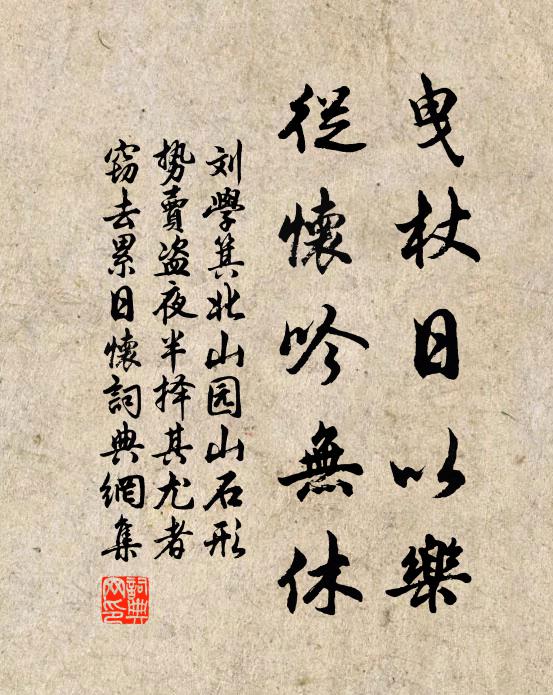 曳杖日以樂
從懷吟無休
刘學箕北山园山石形
势賣盗夜半择其尤者
窃去累日懷詞典網集
詞典网印